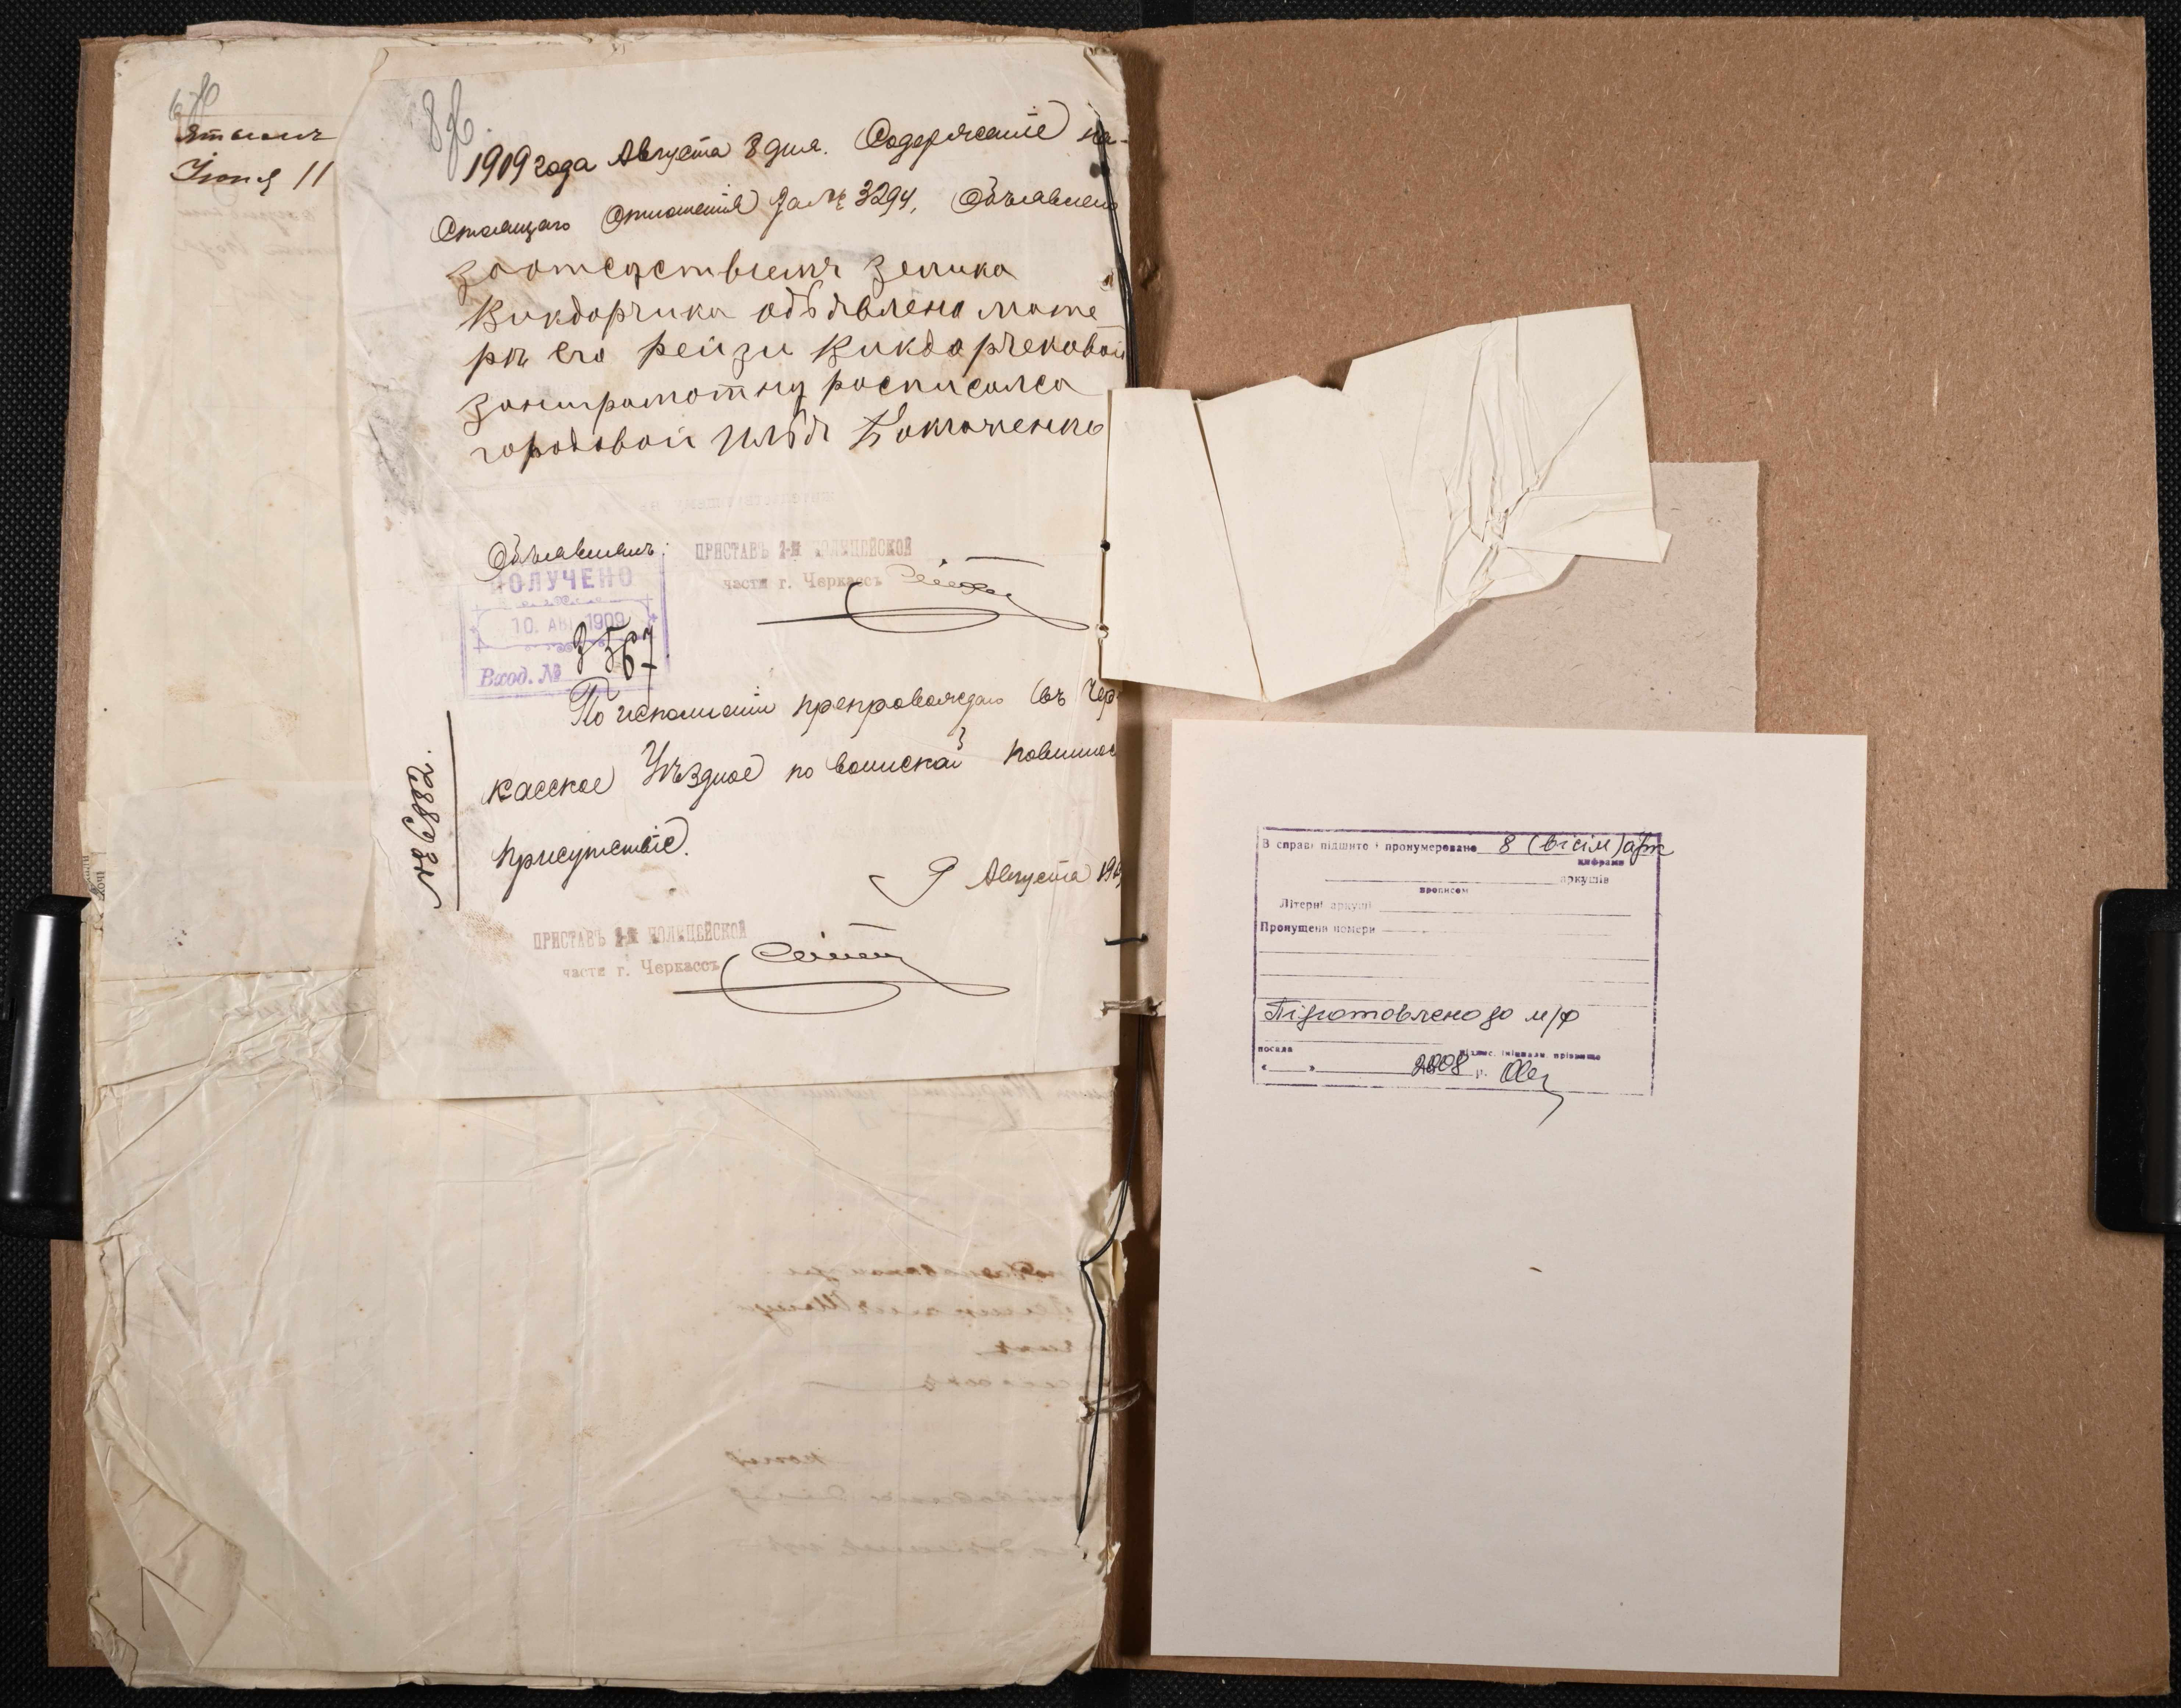 Іюня 11
1909 года Августа 8 дня. Содержаніе на-
стоящаго отношенія за № 3294, Объявлено
заотсуствиемъ Зелика
Викдорчика объявлено мате
ри его Рейзи Викдорчековой
заниграмотну росписалса
городовой Илья
Объявилъ:
ПРИСТАВЪ 2-Й ПОЛИЦЕЙСКОЙ
части г. Черкассъ
ПОЛУЧЕНО
10. АВГ 1909
Вход. № 3567
По исполнении препровождаю въ Чер
касское Уѣздное по воинской повиннос
присутствіе.
9 Августа 1909
№ 6882.
ПРИСТАВЪ 2-Й ПОЛИЦЕЙСКОЙ
части г. Черкассъ
В справі підшито і пронумеровано 8 (вісім) арк
цифрами
аркушів
прописом
Літерні аркуші
Пропущено номери
Підготовлено до м/ф
посада підпис, ініціали, прізвище
« » 2008 р.